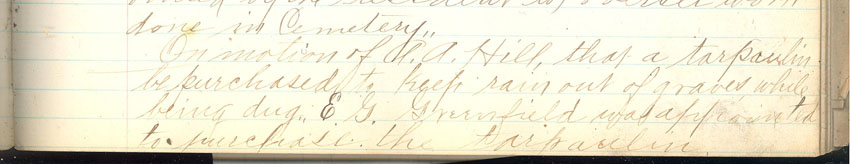 done in Cemetery.
On motion of A. A. Hill, that a tarpaulin
be purchased to keep rain out of graves while
being dug. E. G. Greenfield was appointed
to purchase the tarpaulin